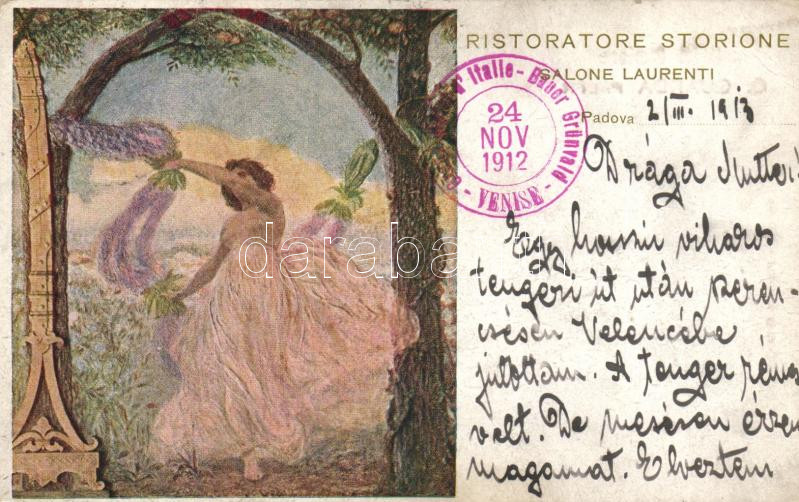 RISTORATORE STORIONE
SALONE LAURENTI
d'Italie - Bauer Grünwald
24
NOV
1912
- VENISE -
Padova 2/III. 1913
Drága Mutter!
Egy hosszú viharos
tengeri út után szeren-
csésen Velencébe
jutottam. A tenger réma
volt. De mesésen érzem
magamat. Elveztem
darabanth